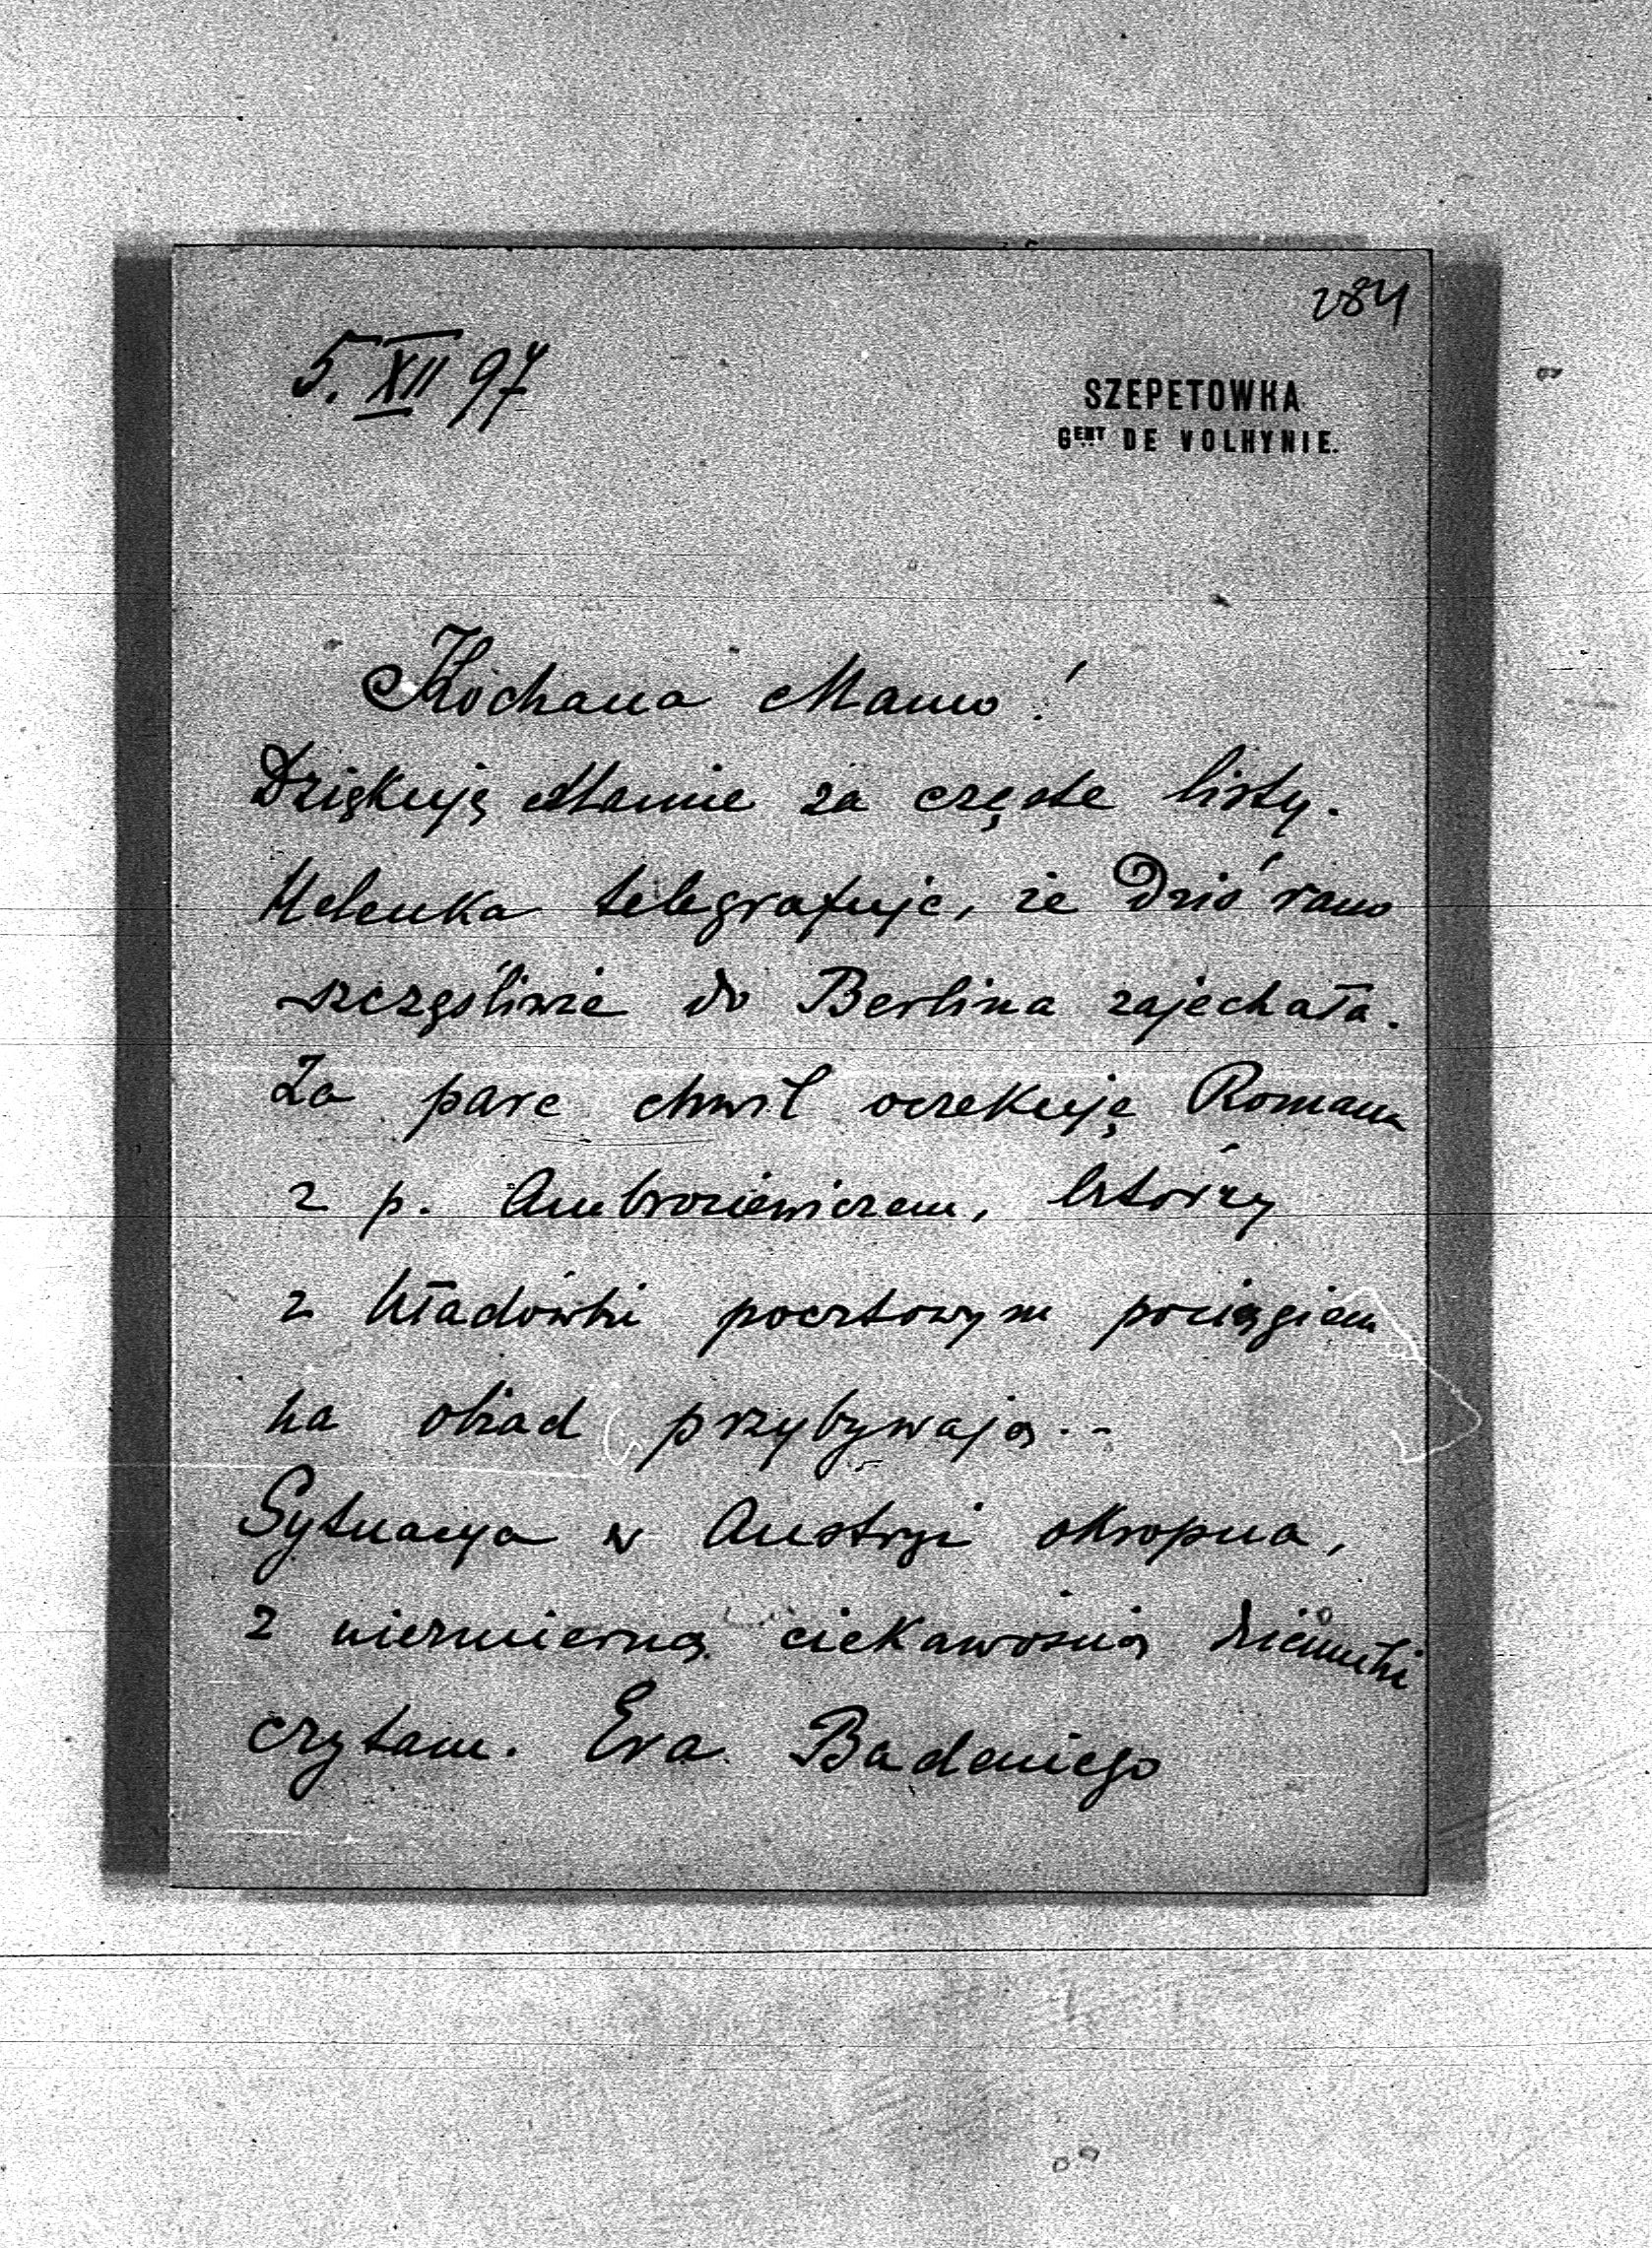 284
5. XII 97
SZEPETOWKA
Gent DE VOLHYNIE.
Kochana Mamo!
Dziękuję Mamie za częste listy.
Helenka telegrafuje, że dziś rano
szczęśliwie do Berlina zajechała.
Za parę chwil oczekuję Romana
z p. Ambroziewiczem, którzy
z Uładówki pocztowym pociągiem
na obiad przybywają..
Sytuacya w Austryi okropna,
z niezmierną ciekawością dzienniki
czytam. Era Badeniego